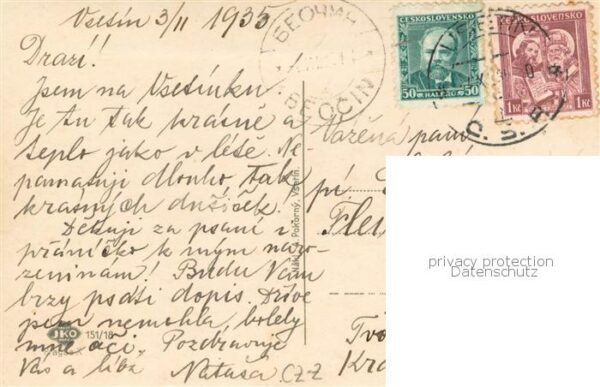 Vsetín 3/11 1935
Drazí!
Jsem na Vsetínku.
Je tu tak krásně a
teplo jako v létě. Ne-
pamatuji dlouho tak
krásných dušiček.
Děkuji za psaní i
přáníčko k mým naro-
zeninam! Budu Vám
brzy psáti dopis. Dříve
jsem nemohla, bolely
mne oči. Pozdravuje
Vás a líbá Nataša
CZ-Z
БЕОЧИН
BEOČIN
ČESKOSLOVENSKO
50 HALÉŘŮ 50
ČESKOSLOVENSKO
1 Kč 1 Kč
VSETÍN
Č.S.R.
Vážená paní
pí
Pokorný, Vsetín.
JKO
151/18
privacy protection
Datenschutz